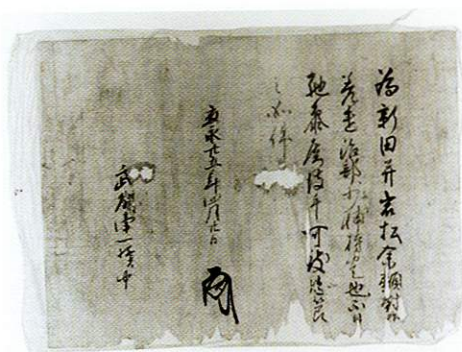 為新田并岩松余類対治
差遣治部少輔持定也不日
馳参属彼手可致忠節
之状如件
応永廿五年四月廿日
武州南一揆中